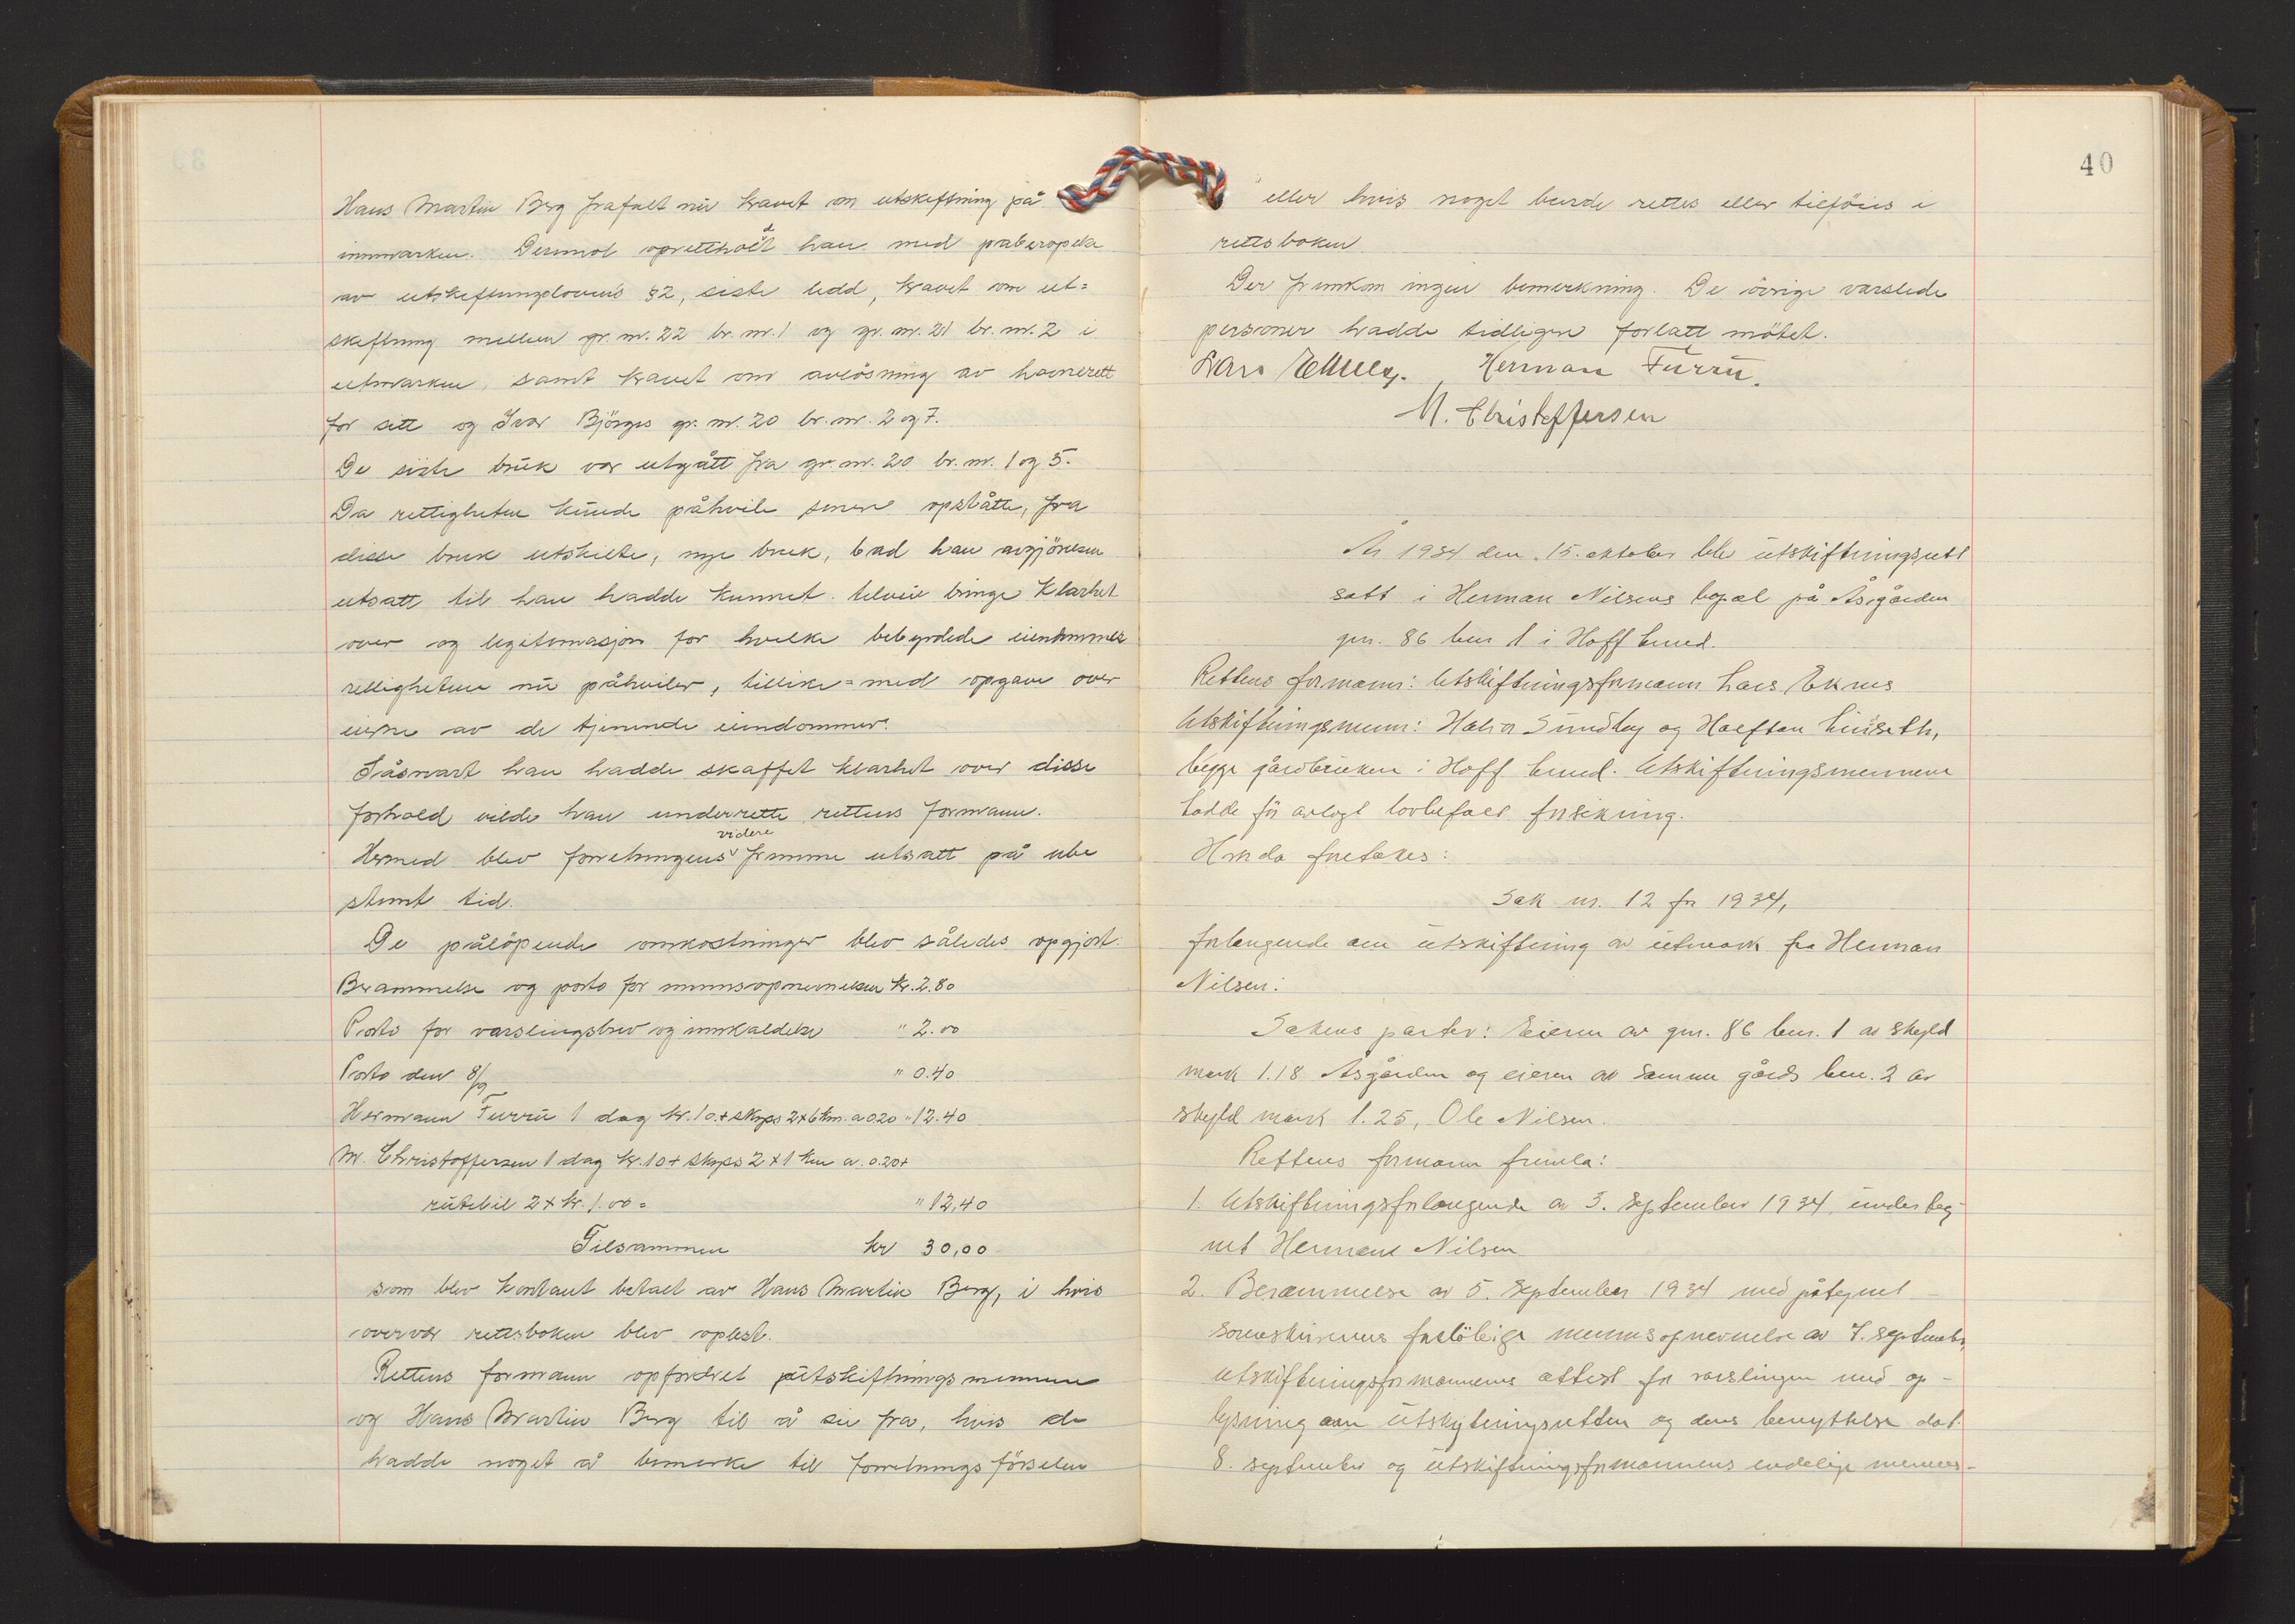 Hans Martin Berg frafalt nu kravet om utskiftning på
innmarken. Derimot oprettholdt han med påberopelse
av utskiftningslovens § 2, siste ledd, kravet om ut=
skiftning mellem gr. nr. 22 br. nr. 1 og gr. nr. 21 br. nr. 2 i
utmarken, samt kravet om avløsning av havnerett
for sitt og Ivar Bjørges gr. nr. 20 br. nr. 2 og 7.
De siste bruk var utgått fra gr. nr. 20 br. nr. 1 og 5.
Da rettigheten kunde påhvile senere opståtte, fra
disse bruk utskilte, nye bruk, bad han avgjørelsen
utsatt til han hadde kunnet bringe klarhet
over og legitimasjon for hvilke bebyrdede eiendommer
rettigheten nu påhviler, tillike=med opgave over
eierne av de tjenende eiendommer.
Såsnart han hadde skaffet klarhet over disse
forhold vilde han underrette rettens formann.
Hermed blev forretningens videre fremme utsatt på ube
stemt tid.
De påløpende omkostninger blev således opgjort:
Berammelse og porto for mennsopnevnelsen kr. 2.80
Porto for varslingsbrev og innkaldelse " 2.00
Porto den 8/9 " 0.40
Hermann Furru 1 dag kr. 10.+ skyss 2x6 km. a 0.20 " 12.40
M. Christoffersen 1 dag kr. 10 + skyss 2 x 1 km a. 0.20+
rutebil 2 x kr. 1.00 = " 12,40
Tilsammen kr 30,00
som blev kontant betalt av Hans Martin Berg, i hvis
overvær rettsboken blev oplest.
Rettens formann opfordret utskiftningsmennene
og Hans Martin Berg til å sie fra, hvis de
hadde noget å bemerke til forretningsførselen
40
eller hvis noget burde rettes eller tilføies i
rettsboken
Der fremkom ingen bemerkning. De øvrige varslede
personer hadde tidligere forlatt møtet.
Lars Herman Furru.
M. Christoffersen
År 1934 den 15. oktober blev utskiftningsrett
satt i Herman Nilsens bopæl på Åsgården
gnr. 86 bnr 1 i Hoff herred.
Rettens formann: Utskiftningsformann Lars
Utskiftningsmenn: Sundby og Halfdan Linseth,
begge gårdbrukere i Hoff herred. Utskiftningsmennene
hadde før avlagt lovbefalt forsikring.
Hvorda foretokes:
Sak nr. 12 for 1934,
forlangende om utskiftning av utmark fra Herman
Nilsen:
Sakens parter: Eieren av gnr. 86 bnr. 1 av skyld
mark 1.18 Åsgården og eieren av samme gårds bnr. 2 av
skyld mark 1.25, Ole Nilsen.
Rettens formann fremla:
1. Utskiftningsforlangende av 3. september 1934 underteg-
net Hermann Nilsen
2. Berammelse av 5. september 1934 med påtegnet
sorenskriverens foreløbige mennsopnevnelse av 7. september,
utskiftningsformannens attest for varslingen med op-
lysning om utskytningsretten og dens benyttelse dat.
8. september og utskiftningsformannens endelige menns-